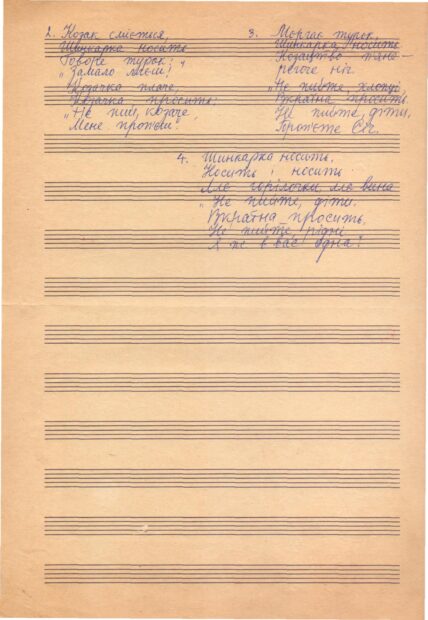 2. Козак сміється,
Шинкарка носить
Говоре турок:
"Замало ллєш!"
Козачка плаче,
Козачка просить:
"Не пий, козаче,
Мене проп'єш!"
3. Моргає турок,
Шинкарка носить
Козацтво п'яне
регоче ніч.
"Не пийте, хлопці,
Вкраїна просить.
Не пийте, діти,
Проп'єте Січ.
4. Шинкарка носить,
Носить і носить
Ллє горілочки, ллє вина
"Не пийте, діти,
Вкраїна просить,
Не пийте, рідні
Я ж в вас одна!"